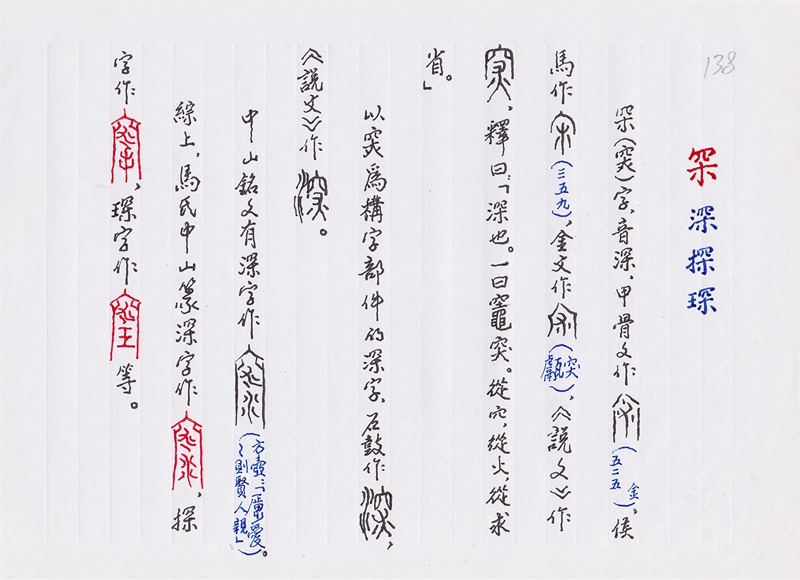 138
罙 深 探 琛
罙(突)字,音深,甲骨文作(金五二五),侯
馬作(三五九),金文作(突甗),《説文》作
,釋曰:「深也。一曰竈突。從穴,從火,從求
省。」
以突爲構字部件的深字,石鼓作,
《説文》作。
中山銘文有深字作(方壺:「愛深則賢人親」)。
綜上,馬氏中山篆深字作,探
字作,琛字作等。